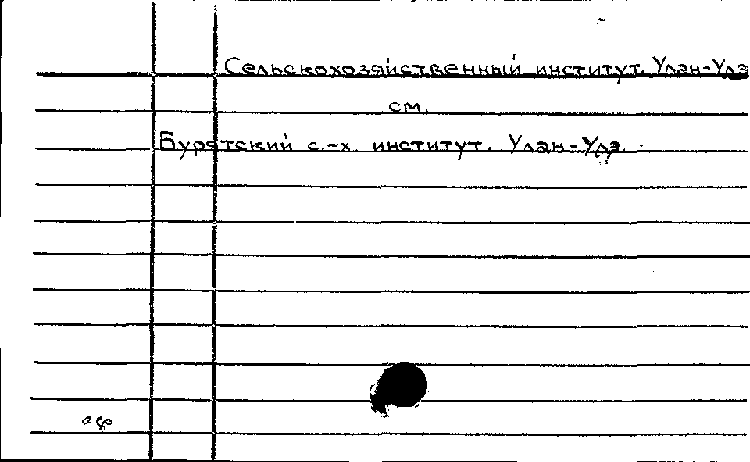 Сельскохозяйственный институт. Улан-Удэ
см.
Бурятский с.-х. институт. Улан-Удэ.